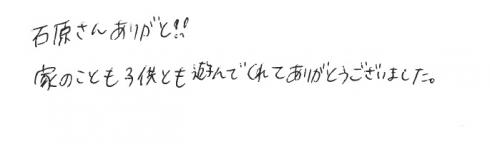 石原さんありがと!!
家のことも子供とも遊んでくれてありがとうございました。